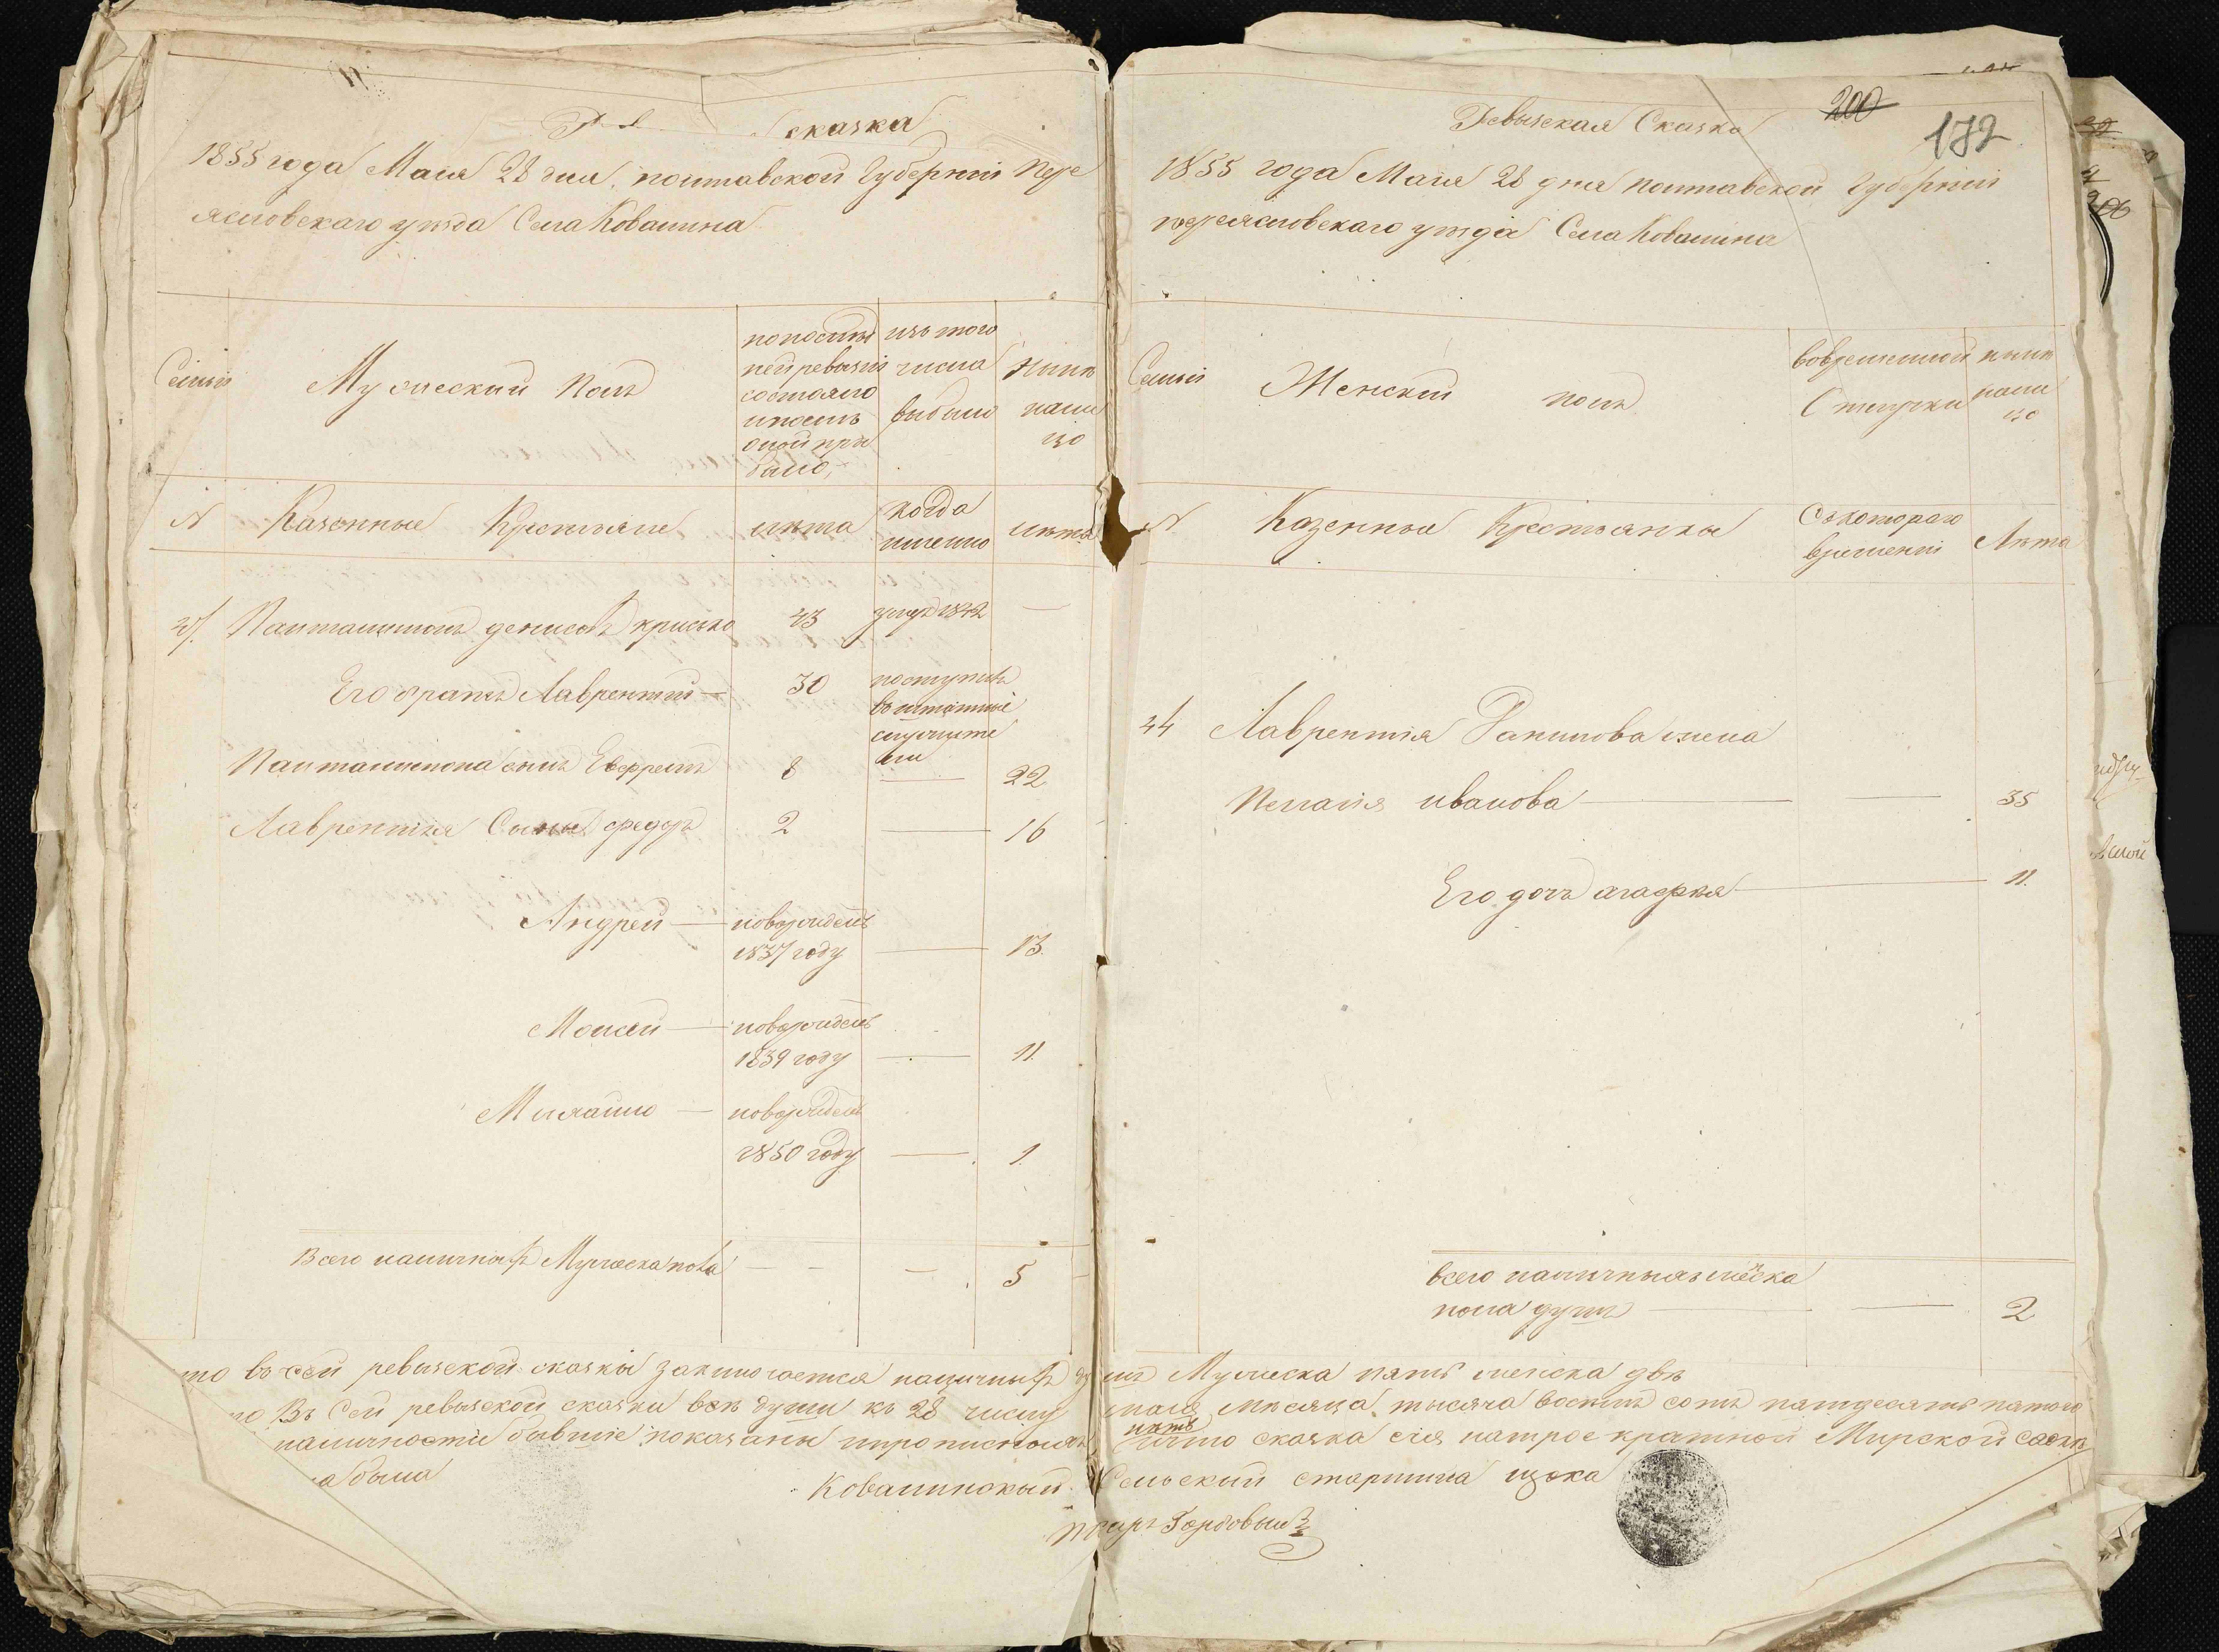 сказка
1855 года Мая 28 дня, полтавской Губерніи Пере
яславскаго уезда Села Ковалина
Семьи
Мужеский Полъ
попослед
ней ревизіи
состояло
и после
оной при
было,
изъ того
числа
выбыло
Ныне
нали
цо
N
Казенные Крестьяне
лета
когда
именно
лета
Пантелимонъ денисовъ крисько 43 умре 1842 —
Его братъ Лаврентий — 30 поступилъ
въ штатные
служите
ли
Пантелимона сынъ Евфремъ 8 — 22
Лаврентия Сыны федоръ 2 — 16
Андрей — новорожденъ
1837 году — 13.
Моисей — новорожденъ
1839 году — 11.
Михайло — новорожденъ
1850 году — 1.
Всего наличныхъ Мужеска пола — — — 5
200
182
Ревизская Сказка
1855 года Мая 28 дня полтавской Губерніи
переяславскаго уезда Села Ковалина
Семьи
Женский полъ
вовременной
Отлучки
ныне
нали
цо
N
Казенные Крестьянки
Съкотораго
времени
Лета
44 Лаврентія жена
Пелагия иванова — — 35
Его дочь агафия — 11.
всего наличныхъ женска
пола душъ — — 2
что въ сей ревизской сказки заключается наличныхъ душъ Мужеска пять женска две
что Въ Сей ревизской сказки все души къ 28 числу мая месяца тысяча восемь сотъ пятдесятъ пятого
наличности бывшие показаны и прописныхъ нетъ что сказка сия на трое кратной Мирской
была
Ковалинский Сельский старшина
писарь Горбовый